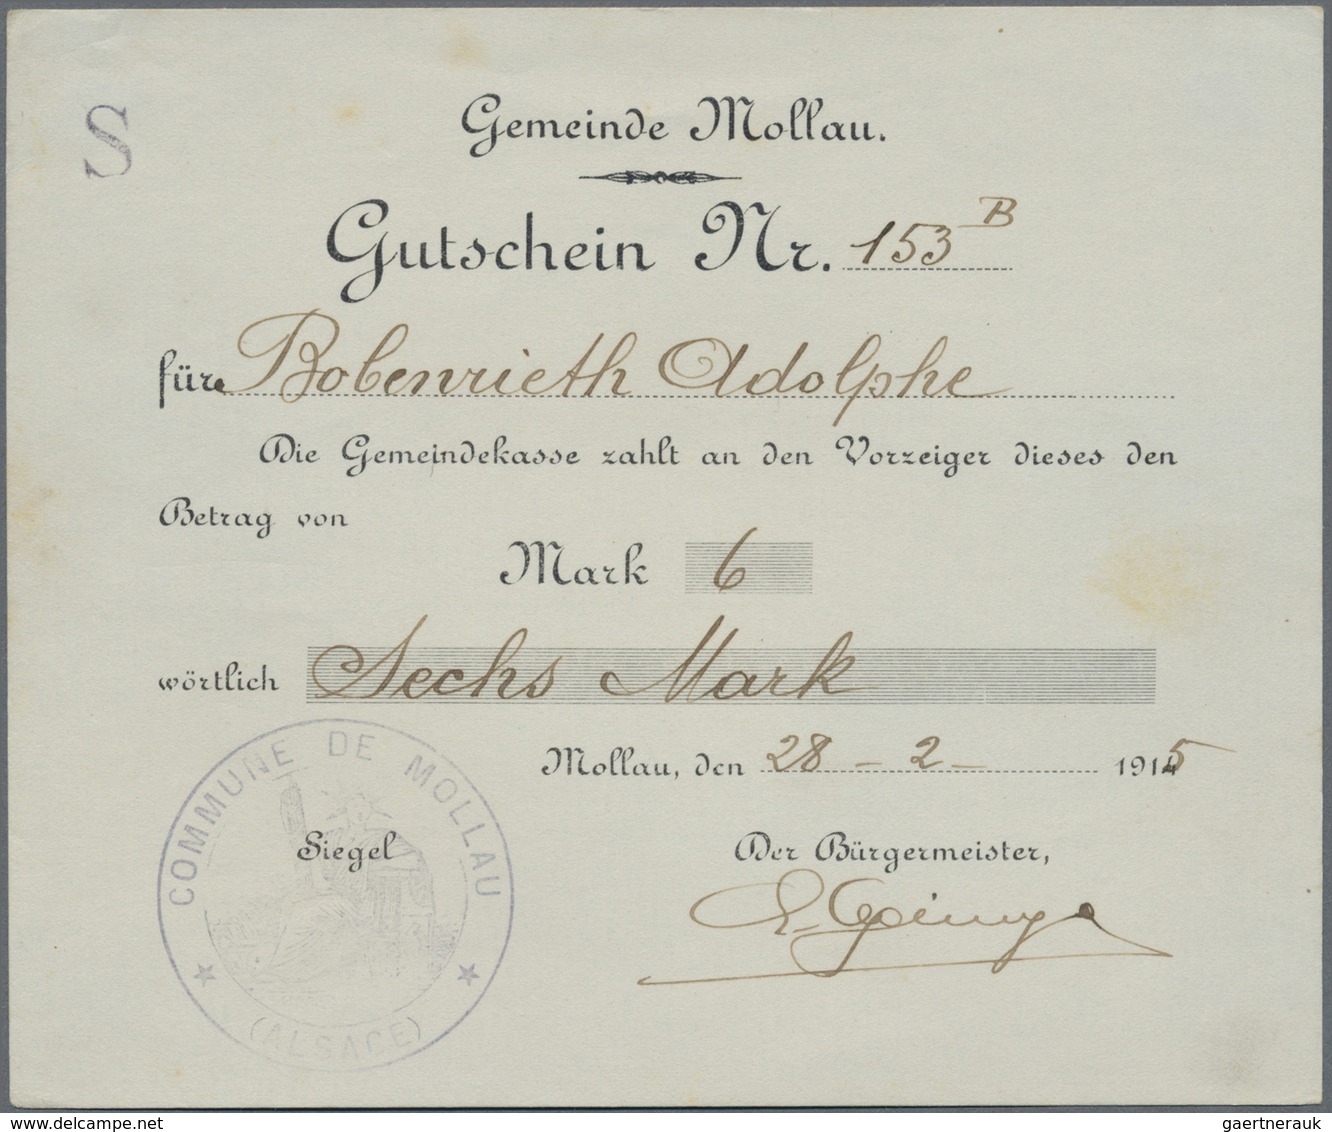 S
Gemeinde Mollau.
Gutschein Nr. 153 B
für Bobenrieth Adolphe
Die Gemeindekasse zahlt an den Vorzeiger dieses den
Betrag von
Mark 6
wörtlich Sechs Mark
Mollau, den 28 - 2 - 1915
COMMUNE DE MOLLAU
(ALSACE)
Siegel
Der Bürgermeister,
www.delcampe.net
gaertnerauk